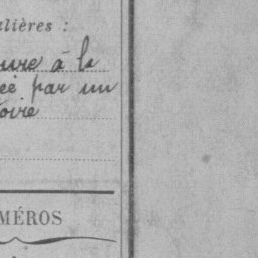 ulières :
ure à la
ée par un
oire
MÉROS